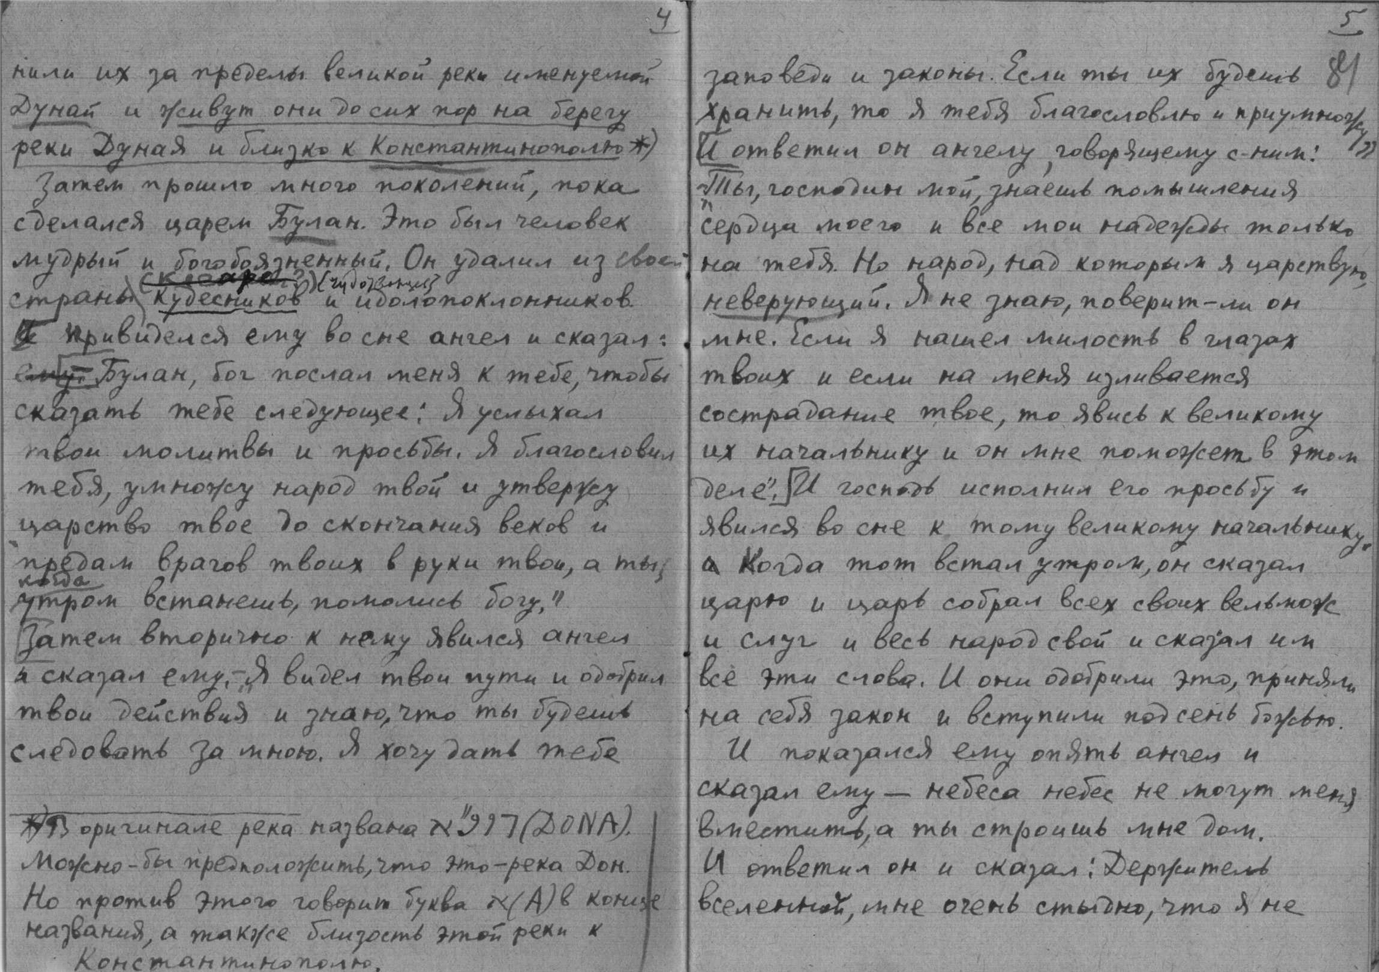 4
нили их за пределы великой реки именуемой
Дунай и живут они до сих пор на берегу
реки Дуная и близко к Константинополю *)
Затем прошло много поколений, пока
сделался царем Булан. Это был человек
мудрый и богобоязненный. Он удалил из своей
страны кудесников и идолопоклонников.
И привиделся ему во сне ангел и сказал:
ему: Булан, бог послал меня к тебе, чтобы
сказать тебе следующее: Я услыхал
твои молитвы и просьбы. Я благословил
тебя, умножу народ твой и утвержу
царство твое до скончания веков и
предам врагов твоих в руки твои, а ты,
когда
утром встанешь, помолись богу,"
Затем вторично к нему явился ангел
и сказал ему,-"Я видел твои пути и одобрил
твои действия и знаю, что ты будешь
следовать за мною. Я хочу дать тебе
*) В оригинале река названа (DONA).
Можно-бы предположить, что это-река Дон.
Но против этого говорит буква א(А) в конце
названия, а также близость этой реки к
Константинополю.
5
81
заповеди и законы. Если ты их будешь
хранить, то я тебя благословлю и приумножу"
И ответил он ангелу, говорящему с-ним:
"Ты, господин мой, знаешь помышления
сердца моего и все мои надежды только
на тебя. Но народ, над которым я царствую,
неверующий. Я не знаю, поверит-ли он
мне. Если я нашел милость в глазах
твоих и если на меня изливается
сострадание твое, то явись к великому
их начальнику и он мне поможет в этом
деле". И господь исполнил его просьбу и
явился во сне к тому великому начальнику.
а Когда тот встал утром, он сказал
царю и царь собрал всех своих вельмож
и слуг и весь народ свой и сказал им
все эти слова. И они одобрили это, приняли
на себя закон и вступили под сень божью.
И показался ему опять ангел и
сказал ему — небеса небес не могут меня
вместить, а ты строишь мне дом.
И ответил он и сказал: Держитель
вселенной, мне очень стыдно, что я не